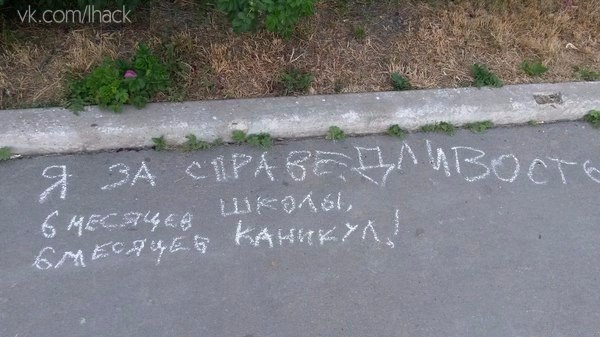 vk.com/lhack
Я ЗА СПРАВЕДЛИВОСТЬ
6 МЕСЯЦЕВ ШКОЛЫ,
6 МЕСЯЦЕВ КАНИКУЛ!